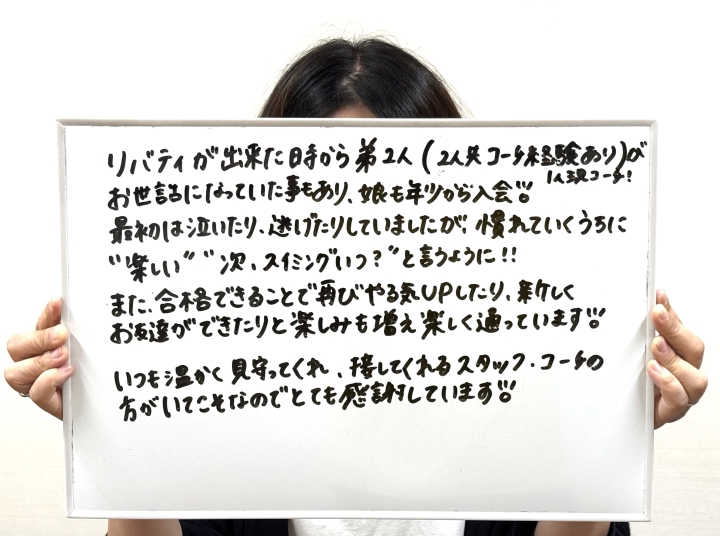 リバティが出来た時から弟2人(2人共コーチ経験あり)が
1人現コーチ!
お世話になっていた事もあり、娘も年少から入会!!
最初は泣いたり、逃げたりしていましたが、慣れていくうちに
"楽しい" "次、スイミングいつ?"と言うように!!
また、合格できることで再びやる気UPしたり、新しく
お友達ができたりと楽しみも増え楽しく通っています!!
いつも温かく見守ってくれ、接してくれるスタッフ・コーチの
方がいてこそなのでとても感謝しています!!